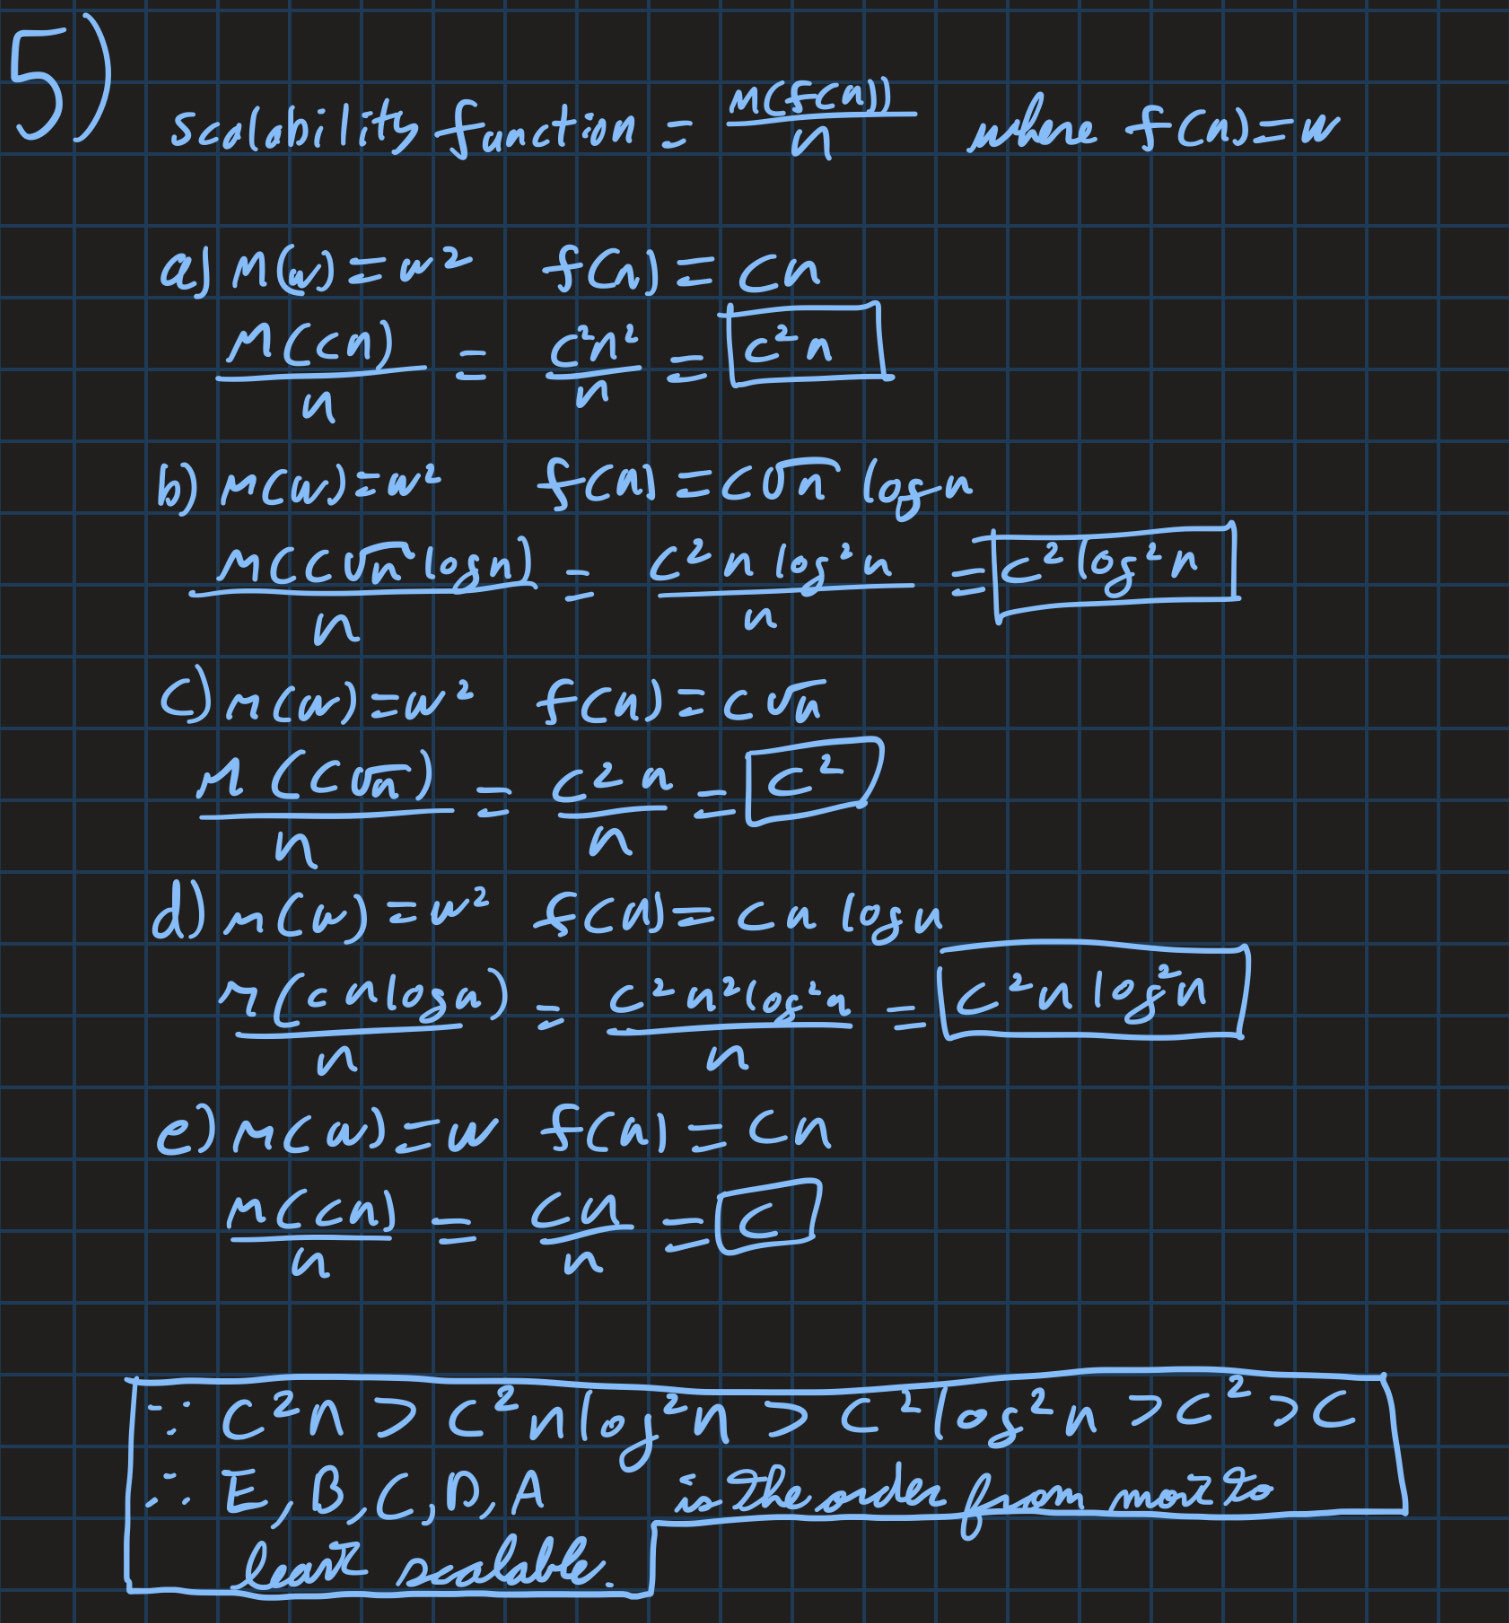 5)
scalability function = M(f(n))/n where f(n)=w
a) M(w)=w² f(n)=Cn
M(cn)/n = C²n²/n = C²n
b) M(w)=w² f(n)=C√n log n
M(C√n log n)/n = C²n log²n/n = C² log²n
C) M(w)=w² f(n)=C√n
M(C√n)/n = C²n/n = C²
d) M(w)=w² f(n)=Cn log n
M(cn log n)/n = C²n²log²n/n = C²n log²n
e) M(w)=w f(n)=Cn
M(cn)/n = Cn/n = C
∵ C²n > C²n log²n > C² log²n > C² > C
∴ E, B, C, D, A is the order from most to
least scalable.